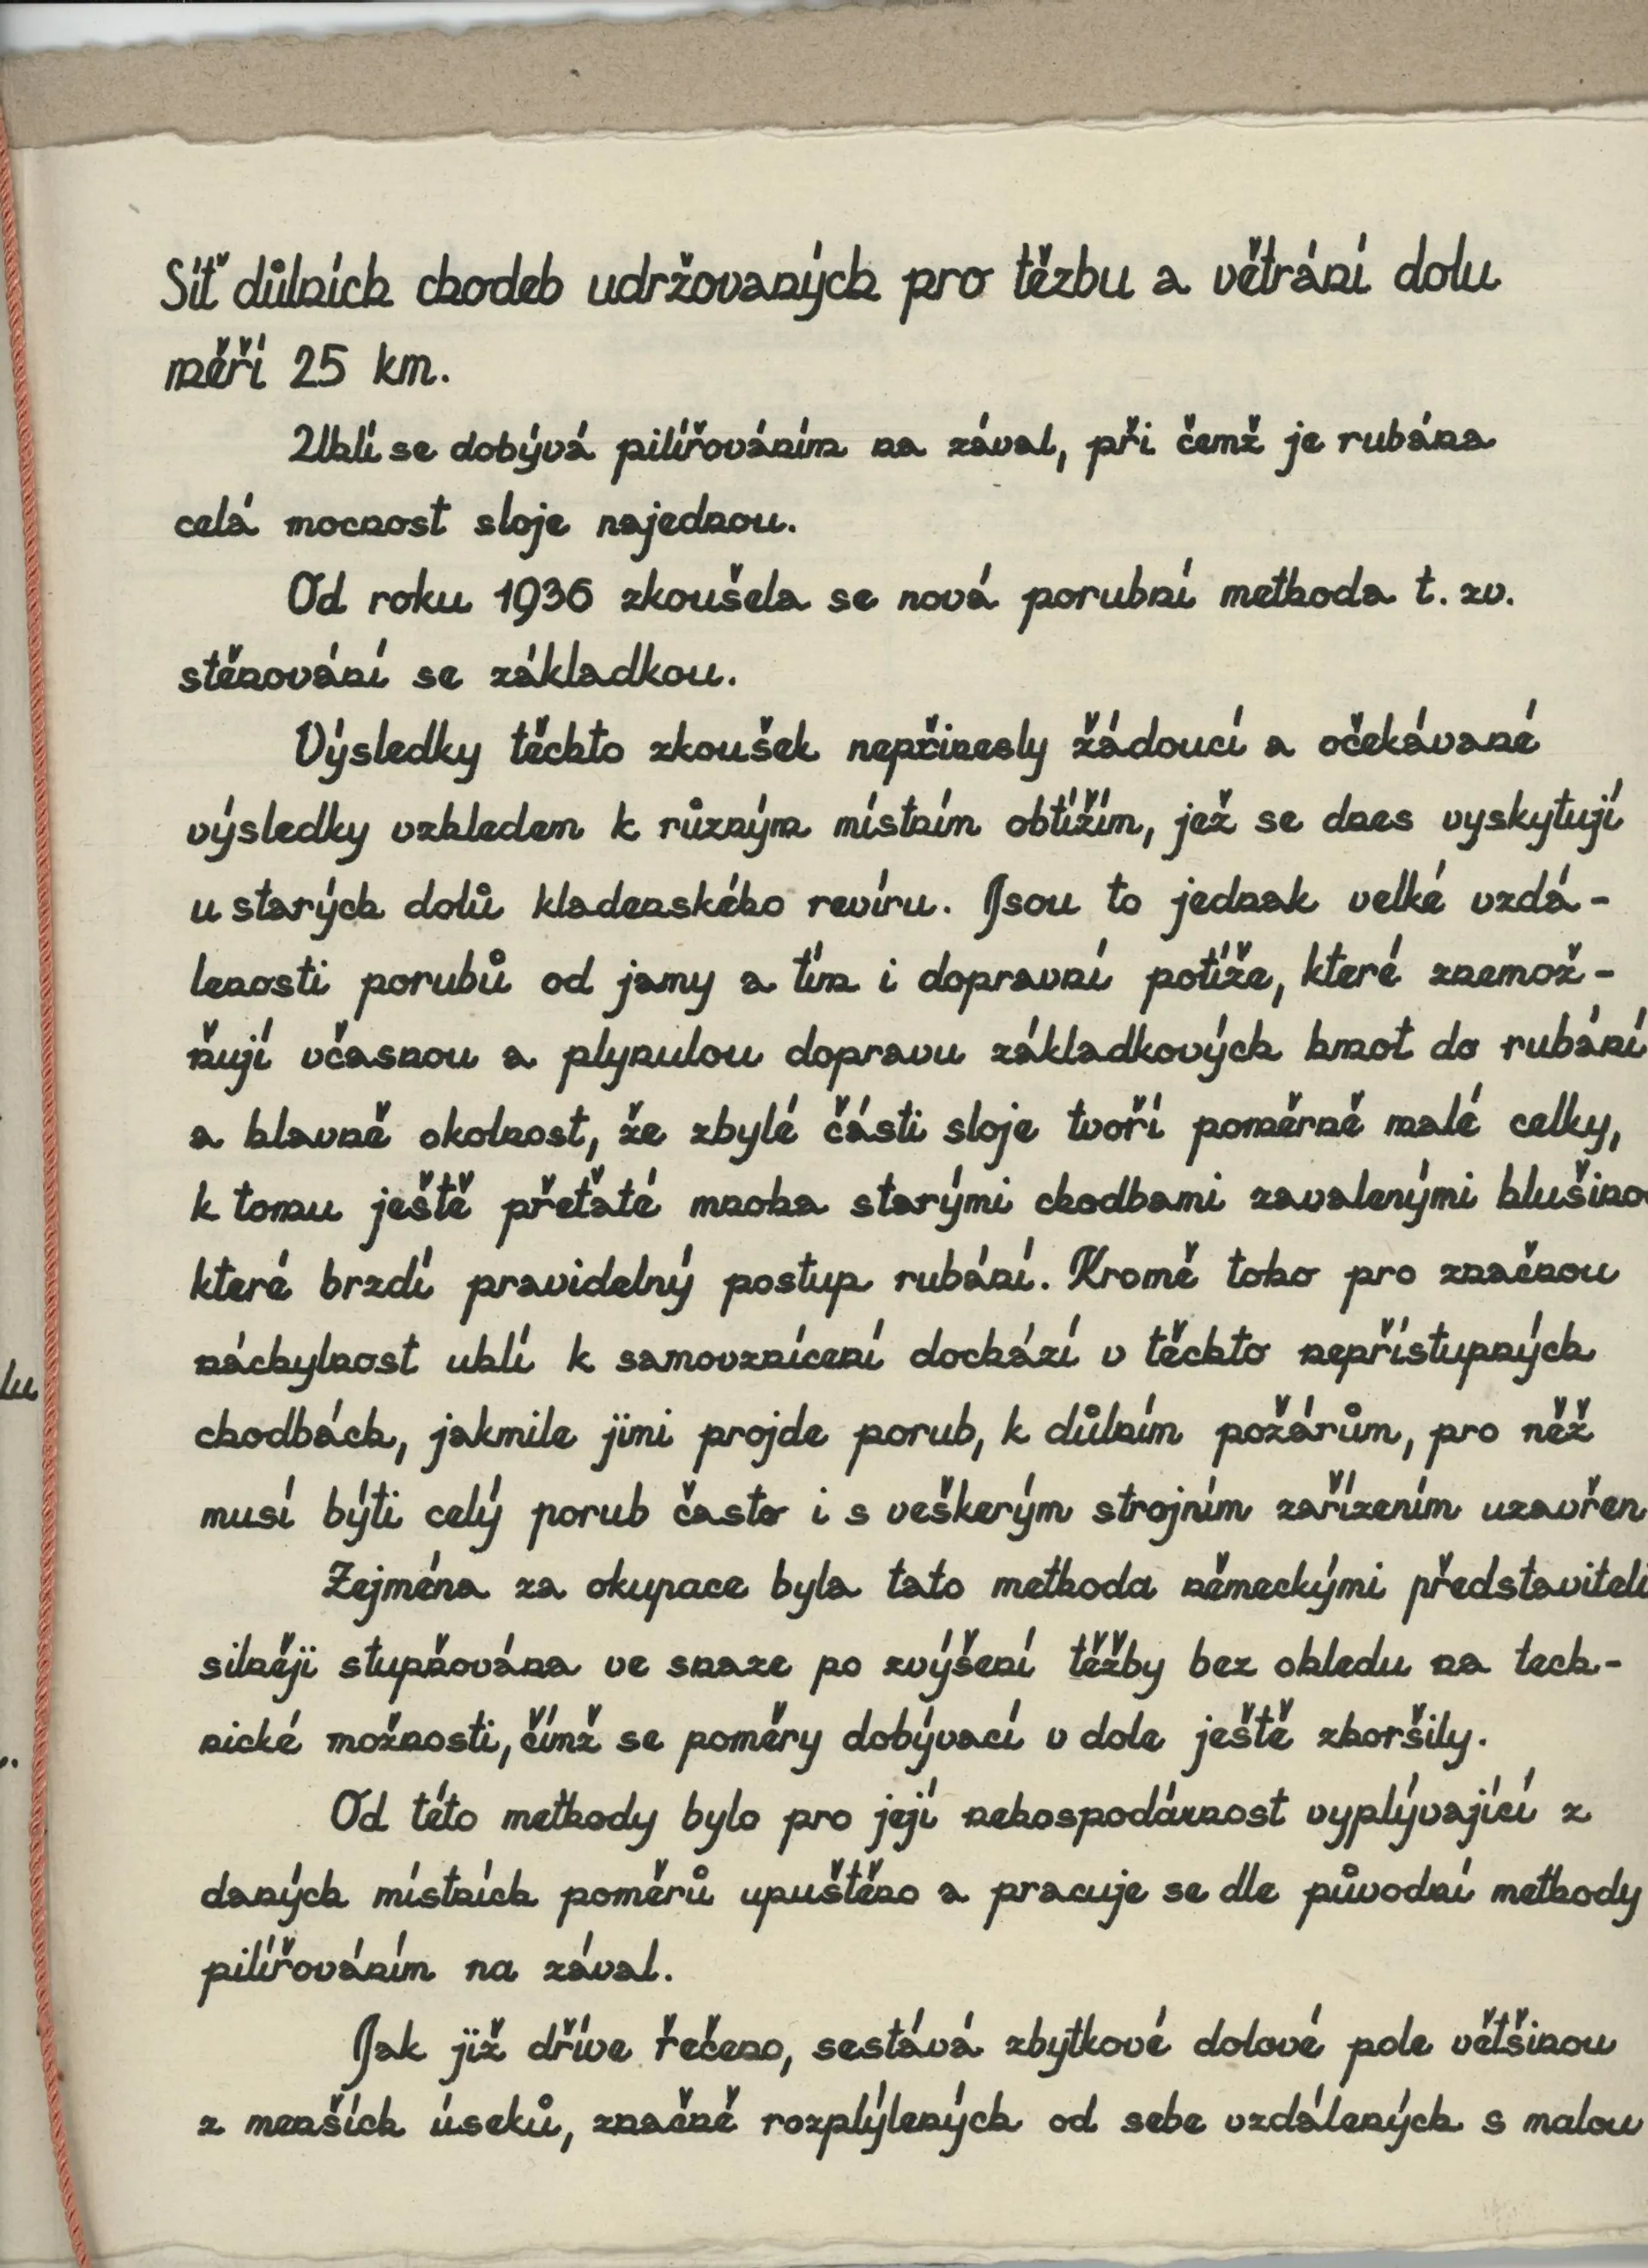 Síť důlních chodeb udržovaných pro těžbu a větrání dolu
měří 25 km.
Uhlí se dobývá pilířováním na zával, při čemž je rubána
celá mocnost sloje najednou.
Od roku 1936 zkoušela se nová porubní methoda t. zv.
stěnování se základkou.
Výsledky těchto zkoušek nepřinesly žádoucí a očekávané
výsledky vzhledem k různým místním obtížím, jež se dnes vyskytují
u starých dolů kladenského revíru. Jsou to jednak velké vzdá-
lenosti porubů od jamy a tím i dopravní potíže, které znemož-
ňují včasnou a plynulou dopravu základkových hmot do rubání
a hlavně okolnost, že zbylé části sloje tvoří poměrně malé celky,
k tomu ještě přeťaté mnoha starými chodbami zavalenými hlušino
které brzdí pravidelný postup rubání. Kromě toho pro značnou
náchylnost uhlí k samovznícení dochází v těchto nepřístupných
chodbách, jakmile jimi projde porub, k důlním požárům, pro něž
musí býti celý porub často i s veškerým strojním zařízením uzavřen
Zejména za okupace byla tato methoda německými představiteli
silněji stupňována ve snaze po zvýšení těžby bez ohledu na tech-
nické možnosti, čímž se poměry dobývací v dole ještě zhoršily.
Od této methody bylo pro její nehospodárnost vyplývající z
daných místních poměrů upuštěno a pracuje se dle původní methody
pilířováním na zával.
Jak již dříve řečeno, sestává zbytkové dolové pole většinou
z menších úseků, značně rozplýlených od sebe vzdálených s malou
lu